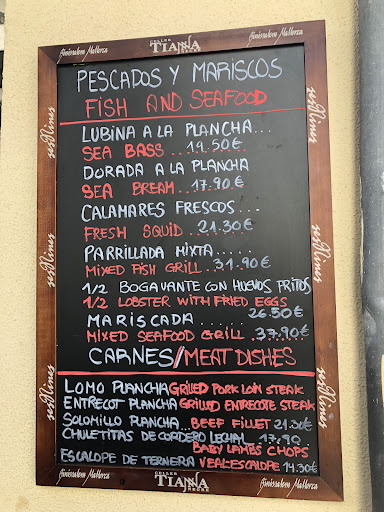 Binissalem Mallorca CELLER TIANNA NEGRE Binissalem Mallorca
PESCADOS Y MARISCOS
FISH AND SEAFOOD
LUBINA A LA PLANCHA...
SEA BASS ....19.50€
DORADA A LA PLANCHA
SEA BREAM....17.90€
CALAMARES FRESCOS....
FRESH SQUID ..21.30€
PARRILLADA MIXTA.....
MIXED FISH GRILL. 31.90€
1/2 BOGAVANTE CON HUEVOS FRITOS
1/2 LOBSTER WITH FRIED EGGS
MARISCADA ...... 26.50€
MIXED SEAFOOD GRILL.. 37.90€
CARNES/MEAT DISHES
LOMO PLANCHA GRILLED PORK LOIN STEAK
ENTRECOT PLANCHA GRILLED ENTRECOTE STEAK
SOLOMILLO PLANCHA... BEEF FILLET 21.30€
CHULETITAS DE CORDERO LECHAL 17.90
BABY LAMBS CHOPS
ESCALOPE DE TERNERA VEAL ESCALOPE 14.30€
Binissalem Mallorca CELLER TIANNA NEGRE Binissalem Mallorca
ses Nines
ses Nines
ses Nines
ses Nines
ses Nines
ses Nines